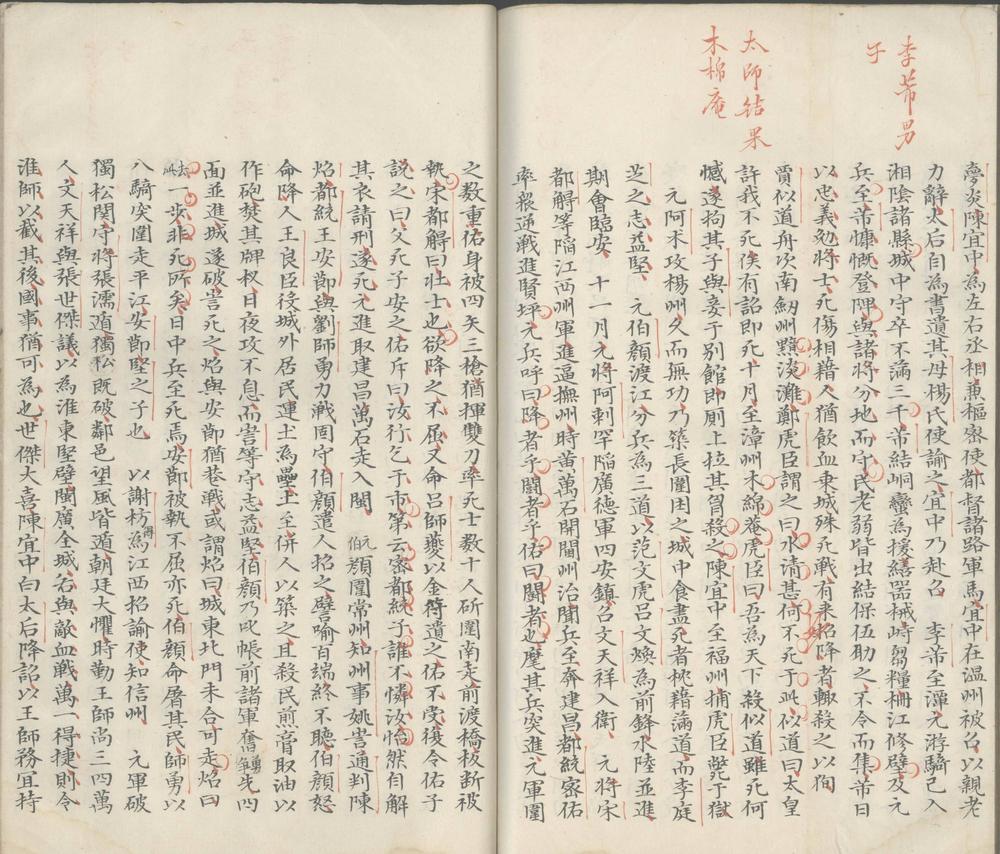 李芾男
子
太師結果
木棉庵
夢炎陳宜中為左右丞相兼樞密使都督諸路軍馬宜中在溫州被召以親老
力辭太后自為書遺其母楊氏使諭之宜中乃赴召　李芾至潭元游騎已入
湘陰諸縣城中守卒不滿三千芾結峒蠻為援繕器械峙芻糧柵江修壁及元
兵至芾慷慨登陴與諸將分地而守民老弱皆出結保伍助之不令而集芾日
以忠義勉將士死傷相藉人猶飲血乘城殊死戰有来招降者輒殺之以徇
賈似道舟次南劒州黯淡灘鄭虎臣謂之曰水清甚何不死于此似道曰太皇
許我不死俟有詔即死十月至漳州木綿菴虎臣曰吾為天下殺似道雖死何
憾遂拘其子與妾于別館即厠上拉其胷殺之陳宜中至福州捕虎臣斃于獄
元阿术攻楊州久而無功乃築長圍困之城中食盡死者枕藉滿道而李庭
芝之志益堅　元伯顏渡江分兵為三道以范文虎呂文煥為前鋒水陸並進
期會臨安　十一月元將阿剌罕陷廣德軍四安鎮召文天祥入衛　元將宋
都䚟等陷江西州軍進逼撫州時黃萬石開閫州治聞兵至奔建昌都統密佑
率衆逆戰進賢坪元兵呼曰降者乎鬭者乎佑曰鬭者也麾其兵突進元軍圍
之數重佑身被四矢三槍猶揮雙刀率死士數十人斫圍南走前渡橋板断被
執宋都䚟曰壯士也欲降之不屈又命呂師夔以金符遺之佑不受復令佑子
說之曰父死子安之佑斥曰汝行乞于市第云密都統子誰不憐汝怡然自解
其衣請刑遂死元進取建昌萬石走入閩　元伯顏圍常州知州事姚訔通判陳
炤都統王安節與劉師勇力戰固守伯顏遣人招之譬喻百端終不聽伯顏怒
命降人王良臣役城外居民運土為壘土至併人以築之且殺民煎膏取油以
作砲焚其牌杈日夜攻不息而訔等守志益堅伯顏乃叱帳前諸軍奮勇爭先四
面並進城遂破訔死之炤與安節猶巷戰或謂炤曰城東北門未合可走炤曰
去此一步非死所矣日中兵至死焉安節被執不屈亦死伯顏命屠其民師勇以
八騎突圍走平江安節堅之子也　以謝枋得為江西招諭使知信州　元軍破
獨松関守將張濡遁獨松既破鄰邑望風皆遁朝廷大懼時勤王師尚三四萬
人文天祥與張世傑議以為淮東堅壁閩廣全城若與敵血戰萬一得捷則令
淮師以截其後國事猶可為也世傑大喜陳宜中白太后降詔以王師務宜持